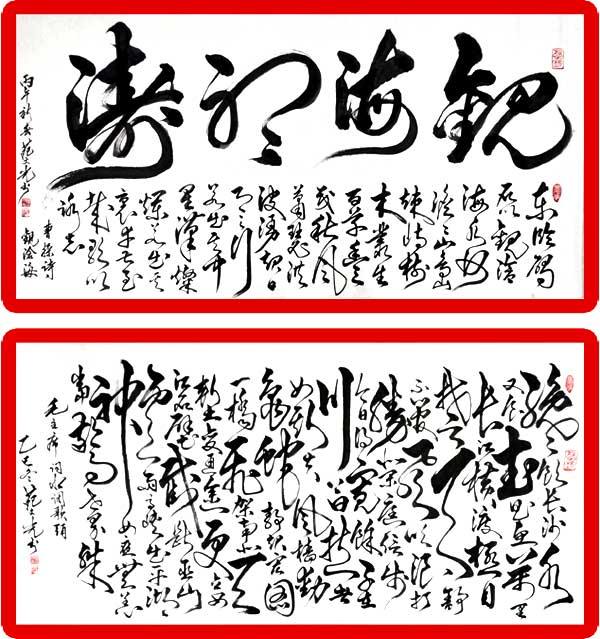 觀海听濤
东临碣
石以观沧
海水何
澹澹山岛
竦峙树
木丛生
百草丰
茂秋风
萧瑟洪
波涌起日
月之行
若出其中
星汉灿
烂若出其
里幸甚至
哉歌以
咏志
曹操诗
观沧海
丙午
书
才饮长沙水
又食武昌鱼万里
长江横渡极目
楚天舒
不管风吹浪打
胜似闲庭信步
今日得宽馀子在
川上曰逝者
如斯夫风樯动
龟蛇静起宏图
一桥飞架南北天
堑变通途更立西
江石壁截断巫山
云雨高峡出平湖
神女应无恙
当惊世界殊
毛主席词水调歌头
乙巳冬
书